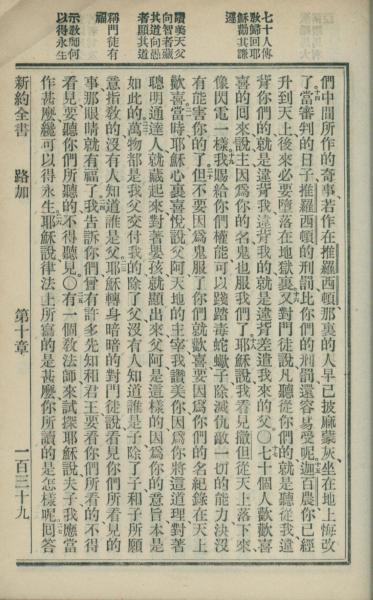 七十人傳
敎歸回耶
穌勸其謙
遜
讚美天父
向智者藏
其道向愚
者顯其道
稱門徒有
福
示敎師何
以得永生
們中間所作的奇事若作在推羅西頓那裏的人早已披麻蒙灰坐在地上悔改
了當審判的日子推羅西頓的刑罰比你們的刑罰還容易受呢迦百農你已經
升到天上後來必要墮落在地獄裏又對門徒說凡聽從你們的就是聽從我違
背你們的就是違背我違背我的就是違背差遣我來的父〇七十個人歡歡喜
喜的囘來說主因爲你的名鬼也服我們了耶穌說我看見撒但從天上落下來
像閃電一樣我賜給你們權能可以踐踏毒蛇蠍子除滅仇敵一切的能力決沒
有能害你的了但不要因爲鬼服了你們就歡喜要因爲你們的名紀錄在天上
歡喜當時耶穌心裏喜悅說父阿天地的主宰我讚美你因爲你將這道理對著
聰明通達人就藏起來對著嬰孩就顯出來父阿是這樣的因爲你的意旨本是
如此的萬物都是我父交付我的除了父沒有人知道誰是子除了子和子所願
意指敎的沒有人知道誰是父耶穌轉身暗暗的對門徒說看見你們所看見的
事那眼睛就有福了我告訴你們曾有許多先知和君王要看你們所看的不得
看見要聽你們所聽的不得聽見〇有一個敎法師來試探耶穌說夫子我應當
作甚麼纔可以得永生耶穌說律法上所寫的是甚麼你所讀的是怎樣呢囘答
新約全書 路加 第十章 一百三十九